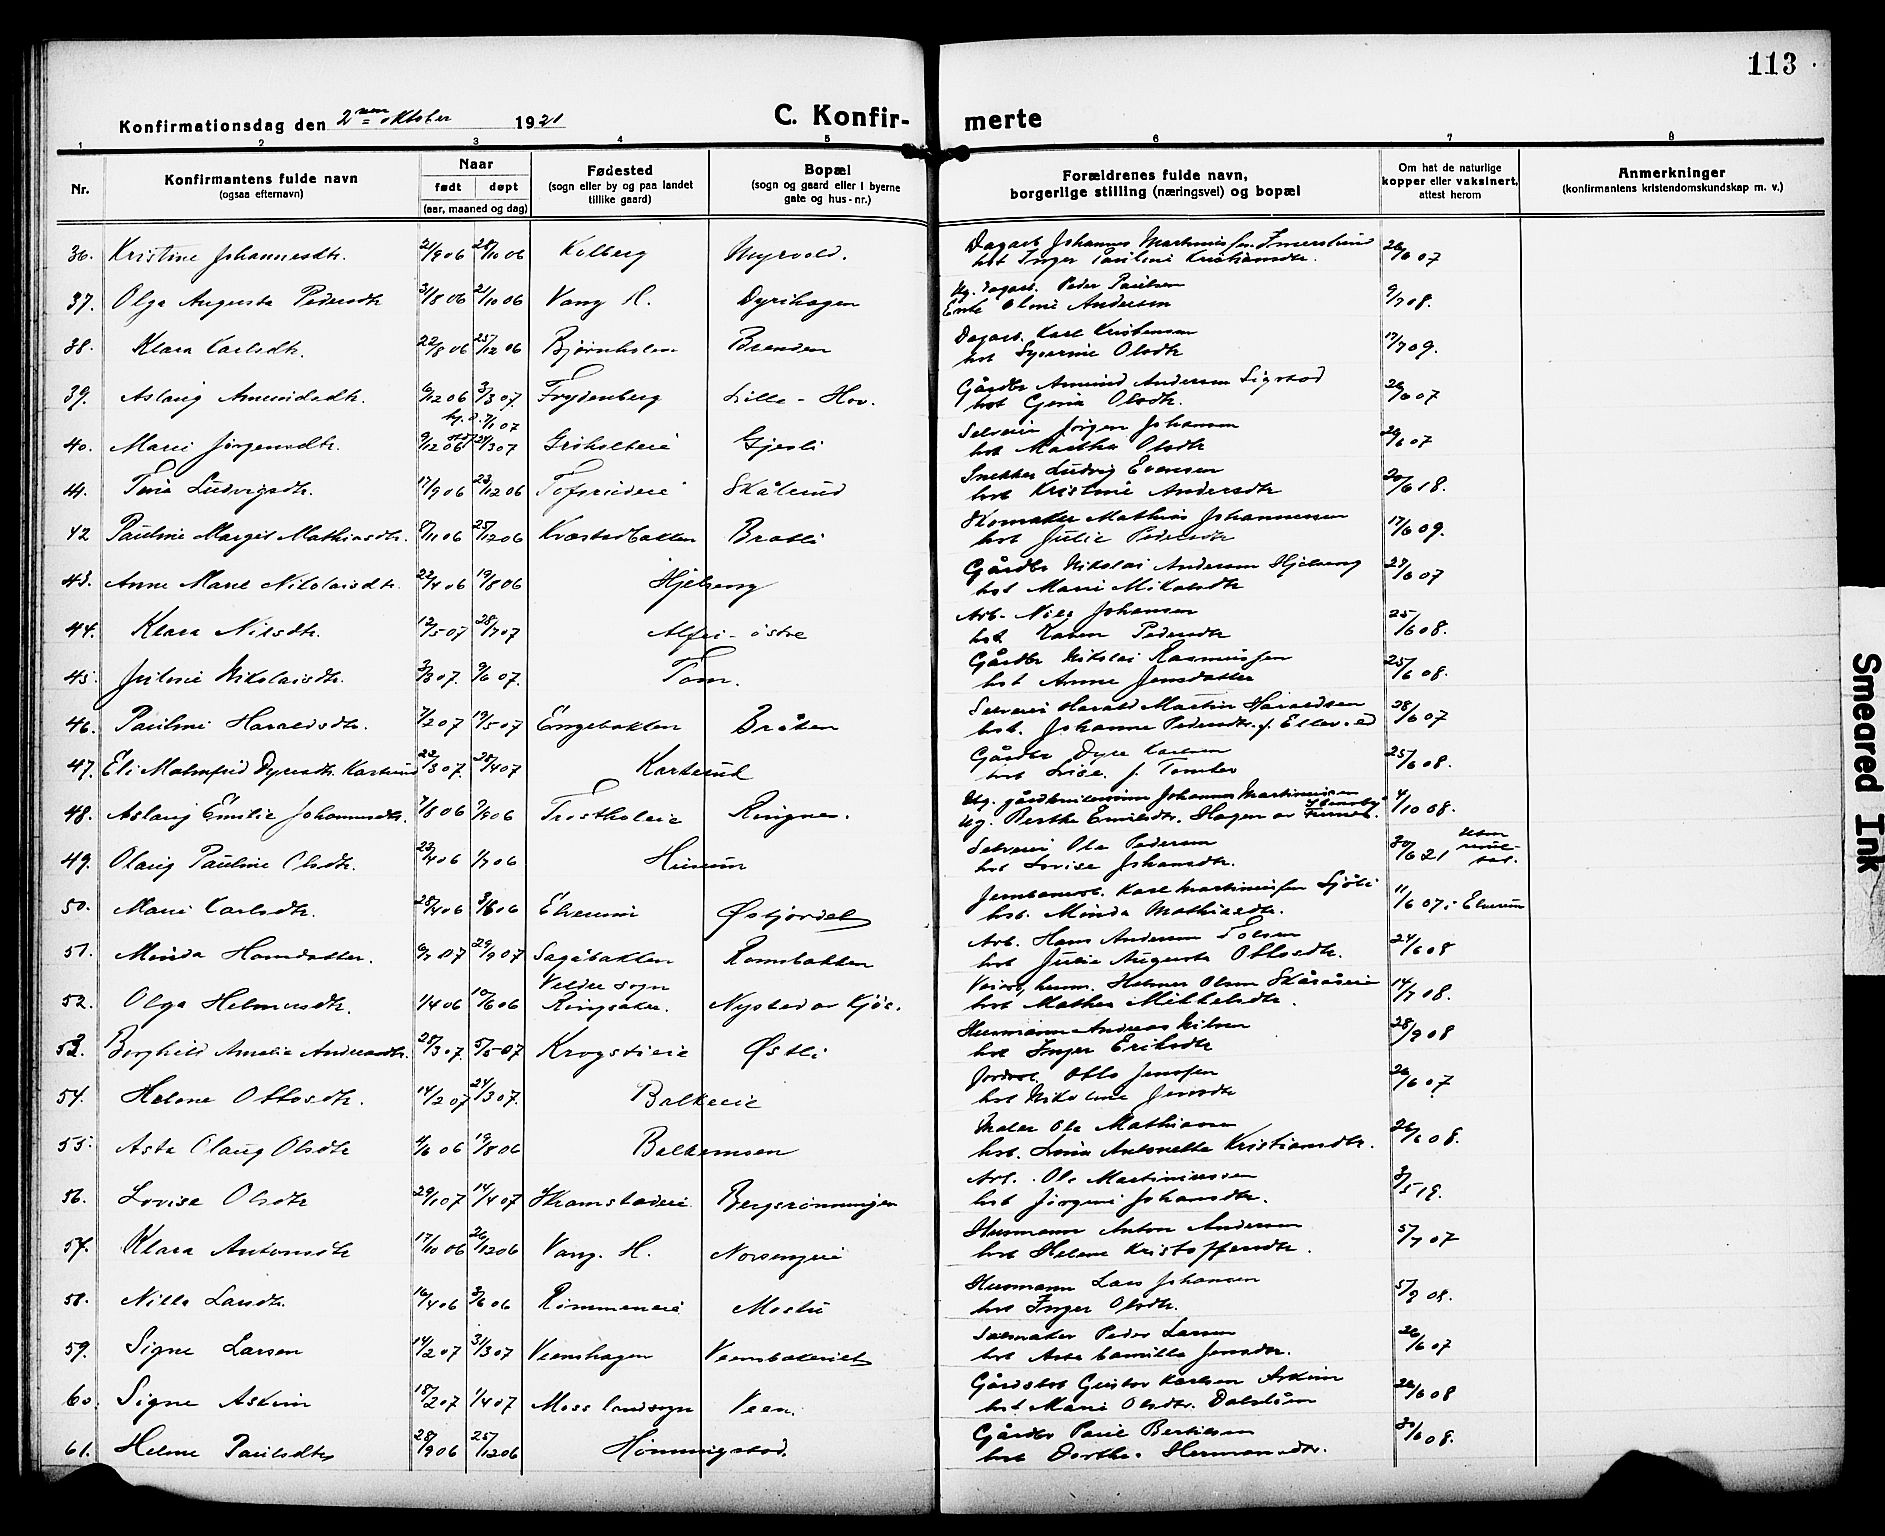 113
Konfirmationsdag den 2nen oktober 1921
C. Konfir-
merte
1 2 3 4 5 6 7 8
Nr.
Konfirmantens fulde navn
(ogsaa efternavn)
Naar
født døpt
(aar, maaned og dag)
Fødested
(sogn eller by og paa landet
tillike gaard)
Bopæl
(sogn og gaard eller i byerne
gate og hus-nr.)
Forældrenes fulde navn,
borgerlige stilling (næringsvei) og bopæl
Om hat de naturlige
kopper eller vaksinert,
attest herom
Anmerkninger
(konfirmantens kristendomskundskap m. v.)
36. Kristine Johannesdtr. 2/9 06 28/10 06 Kolberg Myrvold. Dagarb. Johannes Martinius
hst Inger Pauline Kristiansdtr. 26/6 07
37. Olga Augusta Pedersdtr 31/8 06 21/10 06 Vang H. Dyrihagen Ug. dagarb. Peder Paulsen
Enke Oline Andersen 9/7 08.
38. Klara Karlsdtr. 22/8 06 25/12 06 Bjørnholen Brenden Dagarb. Karl Kristensen
hst Syverine Olsdtr 17/7 09.
39. Aslaug Amundsdtr. 6/12 06 3/3 07. Frydenberg Lille-Hov. Gårdbr Amund Andersen Sigstad
hst Gjeria Olsdtr. 26/6 07
40. Marie Jørgensdtr. 9/12 06 hj. d. 7/1 07 24/3 07 Griholteie Gjesli Selveier Jørgen Johansen
hst Martha Olsdtr 26/6 07
41. Tora Ludvigsdtr. 17/9 06 23/12 06 Tofsrudeie Skålrud Snekker Ludvig Evensen
hst Kristine Andersdtr 20/6 18.
42 Pauline Margit Mathiasdtr. 8/11 06 25/12 06 Kvæstadbakken Bratli Skomaker Mathias Johannessen
hst Julie Pedersdtr 17/6 09.
43. Anne Marie Nikolaisdtr. 22/4 06 19/8 06 Hjelseng Gårdbr Nikolai Andersen Hjelseng
hst Marie Mikalsdtr 23/6 07
44. Klara Nilsdtr. 12/5 07 28/7 07 Alfei-østre Arb. Nils Johansen
hst Karen Pedersdtr 25/6 08.
45. Juline Nikolaisdtr. 3/3 07. 9/6 07. Tom. Gårdbr Nikolai Rasmussen
hst Anne Jensdatter 25/6 08.
46. Pauline Haraldsdtr. 7/2 07 19/5 07 Engebakken Bråten Selveier Harald Martin Haraldsen
hst. Johanne Pedersdtr. f. 28/6 07
47. Eli Malmfrid Dyresdtr. Karterud 22/3 07. 28/4 07 Karterud Gårdbr Dyre Karlsen
hst Lise f. Tomter 25/6 08.
48. Aslaug Emilie Johannesdtr. 7/8 06 9/9 06 Trostholeie Ringnes. Ug. Johannes Martinussen
ug. Berthe Emilsdtr. Hagen av Furnes. 4/10 08.
49. Olaug Pauline Olsdtr. 23/4 06 1/7 06 Huum Selveier Ole Pedersen
hst Lovise Johansdtr. 30/6 21 uten resul-
tat.
50. Marie Karlsdtr. 28/4 06 3/6 06 Elverum Østjordet Jernbanearb. Karl Martinussen Sjøli
hst. Minda Mathiasdtr. 11/6 07 i Elverum
51. Minda Hansdatter. 6/7 07 29/9 07 Sagabakken Romsbakken Arb. Hans Andersen Tolsen
hst Julie Augusta Ottosdtr. 24/6 08
52. Olga Helmersdtr. 1/4 06 10/6 06 Veldre sogn
Ringsaker. Nystad av Kjøs. Helmer Olsen Skåråseie
hst Mathea Mikkelsdtr. 14/7 08.
53. Borghild Amalie Andreasdtr. 28/3 07. 5/5 07 Krogstieie Østli Husmann Andreas Nilsen
hst Inger Eriksdtr 28/9 08
54. Helene Ottosdtr. 14/2 07 24/3 07. Balkeeie Jordarb. Otto Jensen
hst Nikoline Jensdtr 26/6 07
55. Asta Olaug Olsdtr 4/6 06 19/8 06 Balkemoen Maler Ole Mathiasen
hst. Lina Antonette Kristiansdtr. 26/6 08.
56. Lovise Olsdtr 29/1 07 14/4 07 Skramstadeie Bergsrønningen Arb. Ole Martiniussen
hst Jørgine Johansdtr. 3/5 19.
57. Klara Antonsdtr 17/10 06 26/12 06 Vang. H. Norsengeie Husmann Anton Andersen
hst Helene Kristoffersdtr. 5/7 07
58. Nilla Larsdtr. 16/4 06 3/6 06 Rommeneie Mostu Husmann Lars Johansen
hst Inger Olsdtr. 5/9 08.
59. Signe Larsen 14/2 07 31/3 07 Veenshagen Veensbakeriet Salmaker Peder Larsen
hst Asta Camilla Jensdtr. 26/6 07
60. Signe Askim 18/2 07 1/4 07 Moss landsogn Veen. Gårdsbst Gustav Karlsen Askim
hst Marie Olsdtr. Dalstrøm 26/6 08
61. Helene Paulsdtr 28/9 06 25/12 06 Hommerstad. Gårdbr Paul Bertilsen
hst Dorthe Hermansdtr. 30/6 08.
Smeared Ink